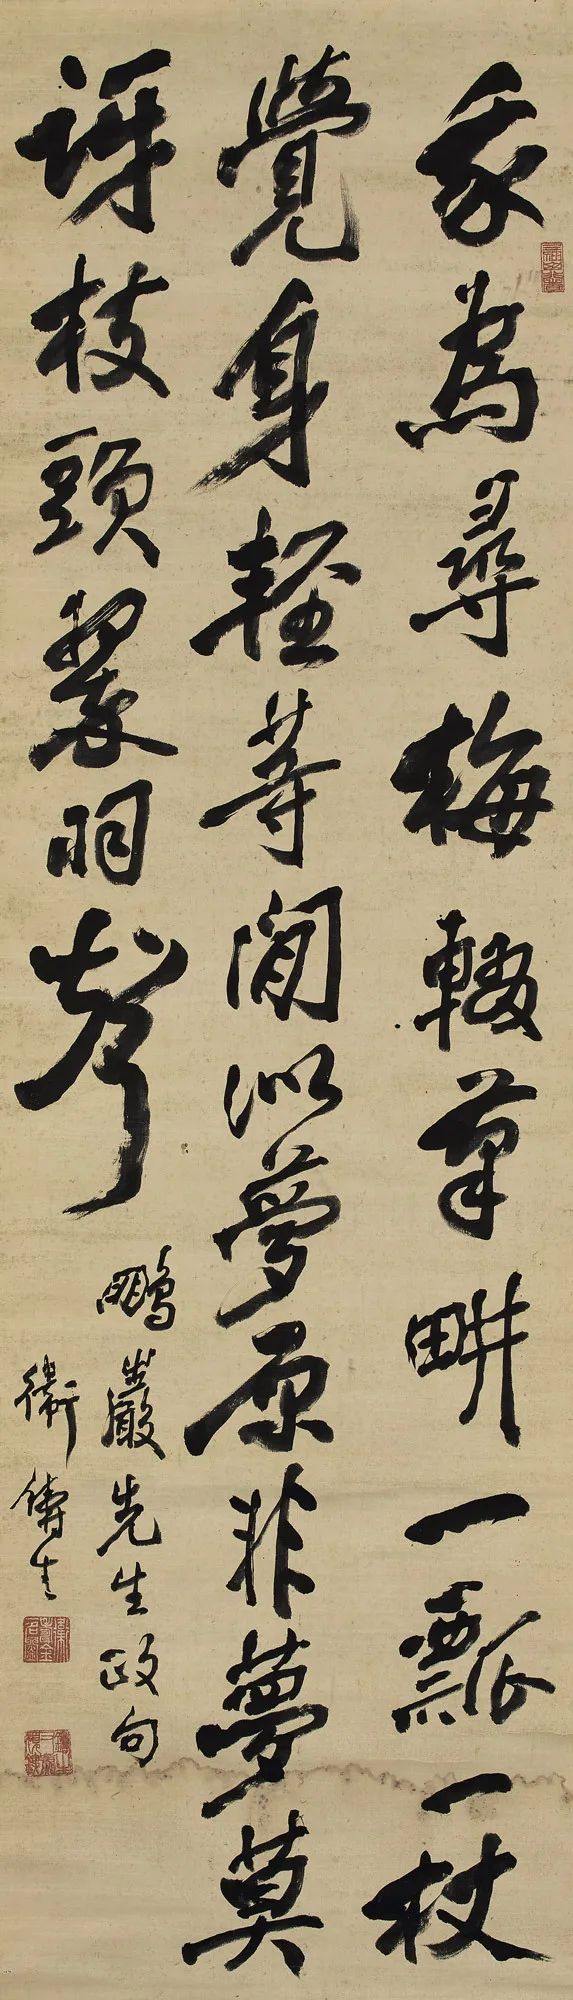 我為尋梅輟筆畊一瓢一杖
覺身輕等閒似夢原非夢莫
訝枝頭翠羽聲
鵬巖先生政句
衛鑄生